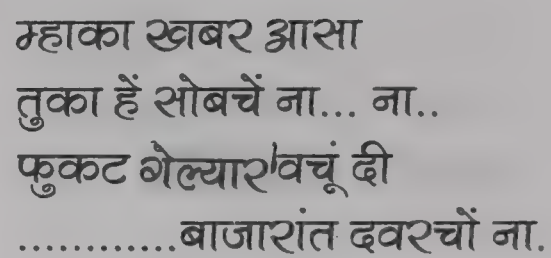 म्हाका खबर आसा
तुका हें सोबचें ना... ना..
फुकट गेल्यार वचूं दी
............बाजारांत दवरचों ना.